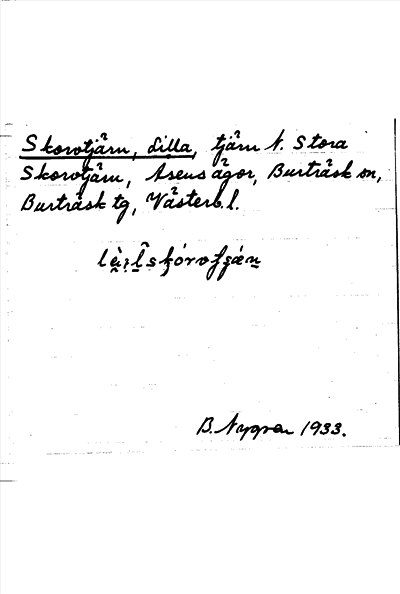 Skorvtjärn, Lilla, tjärn N. Stora
Skorvtjärn, Åsens ägor, Burträsk sn,
Burträsk tg, Västerb. l.
B. Nygren 1933.